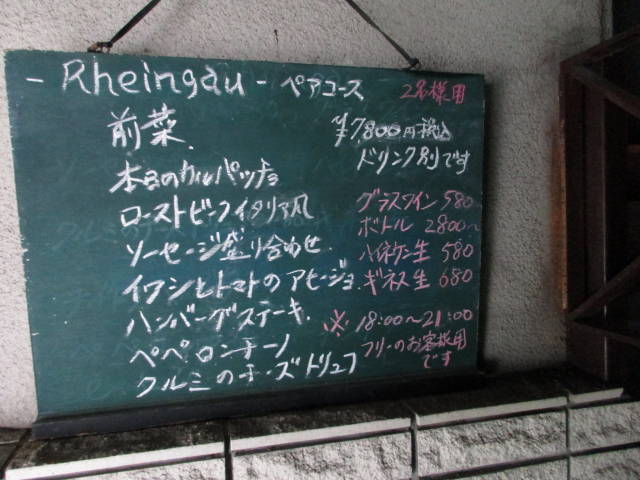 - Rheingau - ペアコース 2名様用
前菜.
¥7,800円税込
ドリンク別です
本日のカルパッチョ
ローストビーフイタリア風
ソーセージ盛り合わせ.
イワシとトマトのアヒージョ.
ハンバーグステーキ.
ペペロンチーノ
クルミのチーズトリュフ
グラスワイン 580~
ボトル 2800~
ハイネケン生 580
ギネス生 680
※ 18:00~21:00
フリーのお客様用
です